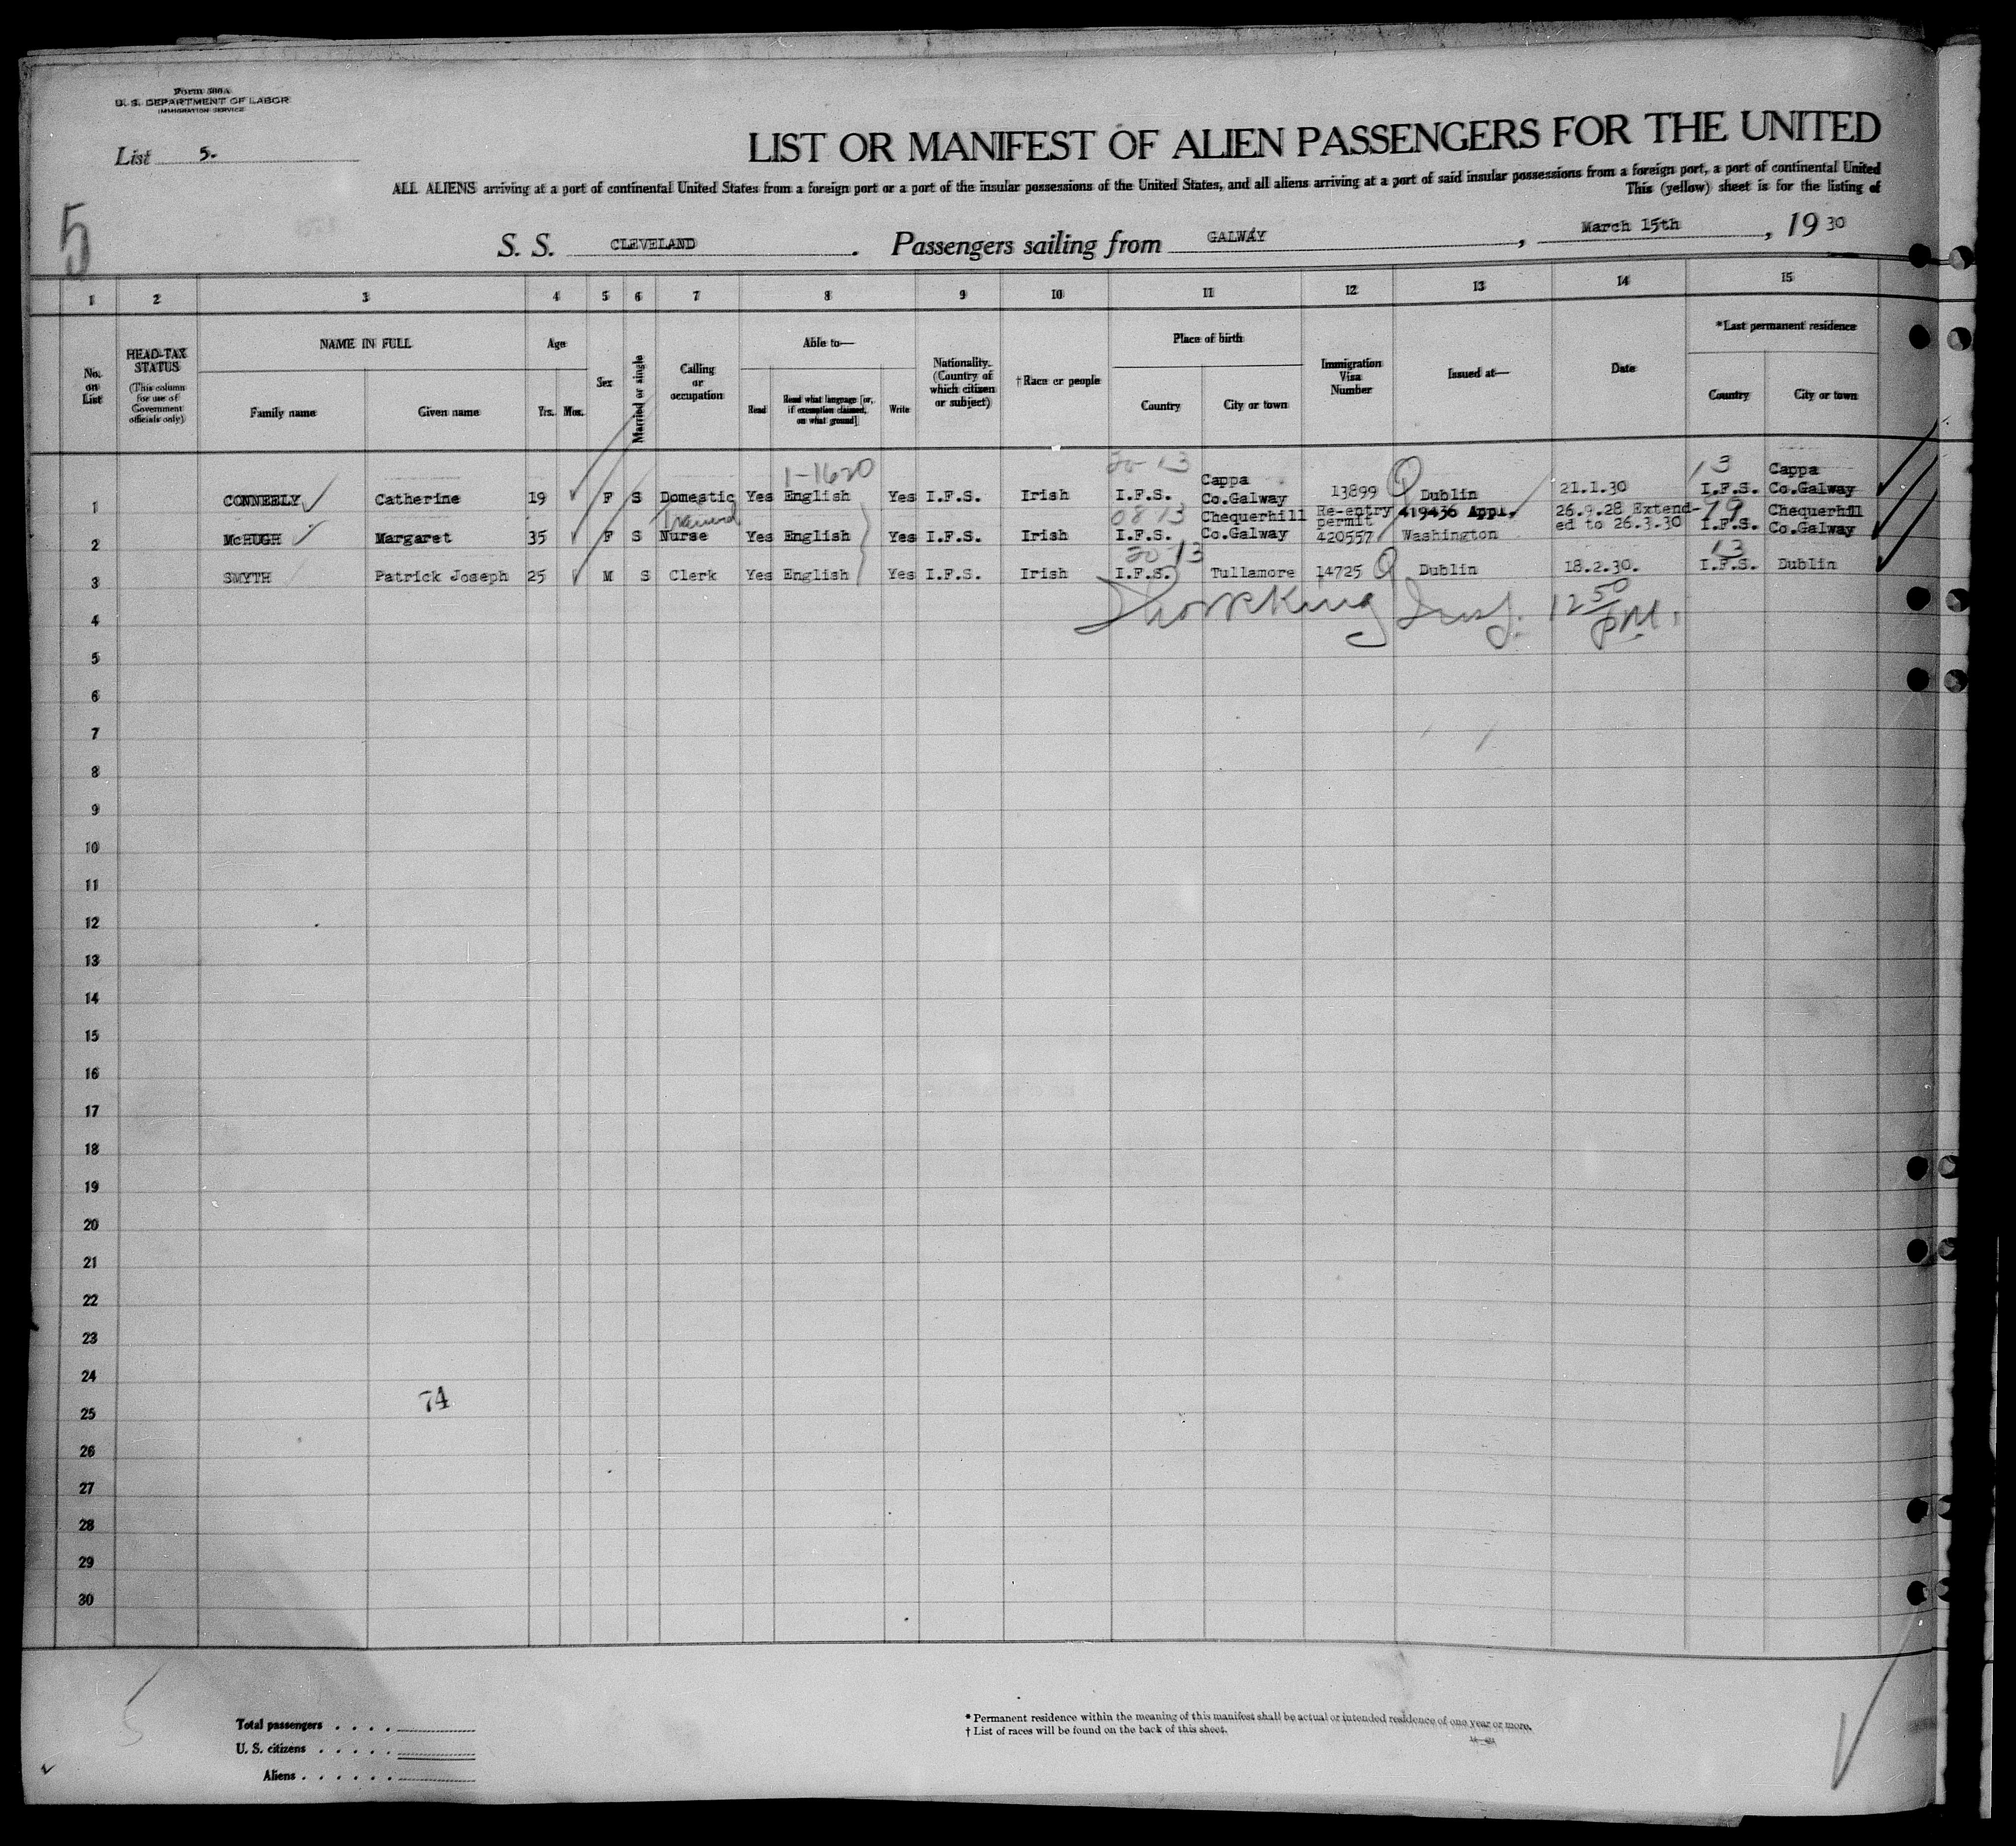 Form 500A
U. S. DEPARTMENT OF LABOR
IMMIGRATION SERVICE
List 5.
5
LIST OR MANIFEST OF ALIEN PASSENGERS FOR THE UNITED
ALL ALIENS arriving at a port of continental United States from a foreign port or a port of the insular possessions of the United States, and all aliens arriving at a port of said insular possessions from a foreign port, a port of continental United
This (yellow) sheet is for the listing of
S. S. CLEVELAND . Passengers sailing from GALWAY , March 15th , 19 30
1 2 3 4 5 6 7 8 9 10 11 12 13 14 15
No. on List
HEAD-TAX STATUS
(This column for use of Government officials only)
NAME IN FULL
Family name Given name
Age
Yrs. Mos.
Sex
Married or single
Calling or occupation
Able to—
Read
Read what language [or, if exemption claimed, on what ground]
Write
Nationality. (Country of which citizen or subject)
†Race or people
Place of birth
Country City or town
Immigration Visa Number
Issued at—
Date
*Last permanent residence
Country City or town
1-1620 20-13 13
Cappa Cappa
1 CONNEELY Catherine 19 F S Domestic Yes English Yes I.F.S. Irish I.F.S. Co.Galway 13899 Dublin 21.1.30 I.F.S. Co.Galway
0813 Chequerhill Re-entry permit 419436 Appl. 26.9.28 Extend- 19 Chequerhill
2 McHUGH Margaret 35 F S Nurse Yes English Yes I.F.S. Irish I.F.S. Co.Galway 420557 Washington ed to 26.3.30 I.F.S. Co.Galway
20-13 13
3 SMYTH Patrick Joseph 25 M S Clerk Yes English Yes I.F.S. Irish I.F.S. Tullamore 14725 Dublin 18.2.30. I.F.S. Dublin
4 12 50 PM.
5
6
7
8
9
10
11
12
13
14
15
16
17
18
19
20
21
22
23
24
74
25
26
27
28
29
30
Total passengers
U. S. citizens
Aliens
* Permanent residence within the meaning of this manifest shall be actual or intended residence of one year or more.
† List of races will be found on the back of this sheet.